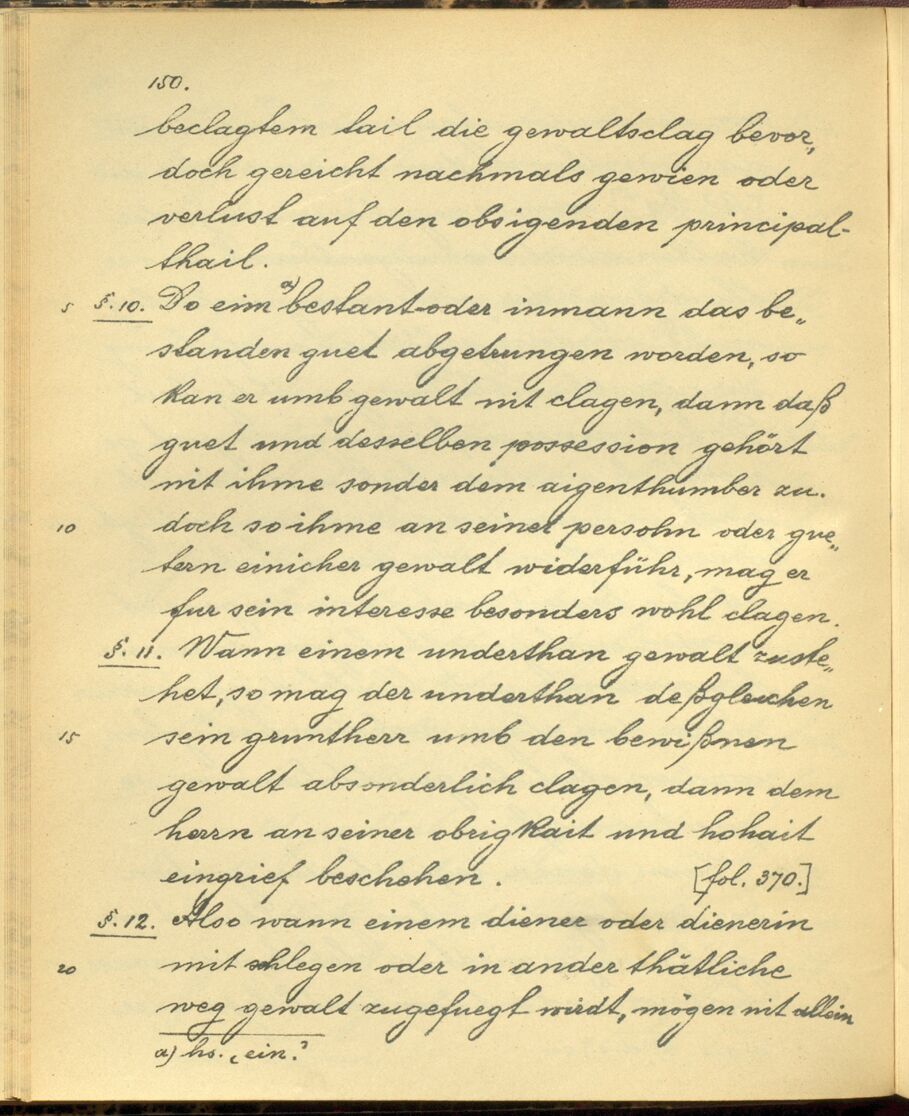 150.
beclagtem tail die gewaltsclag bevor,
doch gereicht nachmals gewien oder
verlust auf den obsigenden principal-
thail.
5 §. 10. Do eim a) bestant-oder inmann das be„
standen guet abgetrungen worden, so
kan er umb gewalt nit clagen, dann daß
guet und desselben possession gehört
nit ihme sonder dem aigenthumber zu.
10 doch so ihme an seiner persohn oder gue„
tern einicher gewalt widerführ, mag er
fur sein interesse besonders wohl clagen.
§. 11. Wann einem underthan gewalt zuste„
het, so mag der underthan deßgleichen
15 sein gruntherr umb den bewißnen
gewalt absonderlich clagen, dann dem
herrn an seiner obrigkait und hohait
eingrief beschehen. [fol. 370.]
§. 12. Also wann einem diener oder dienerin
20 mit schlegen oder in ander thätliche
weg gewalt zugefuegt wirdt, mögen nit allein
a) hs. „ein."